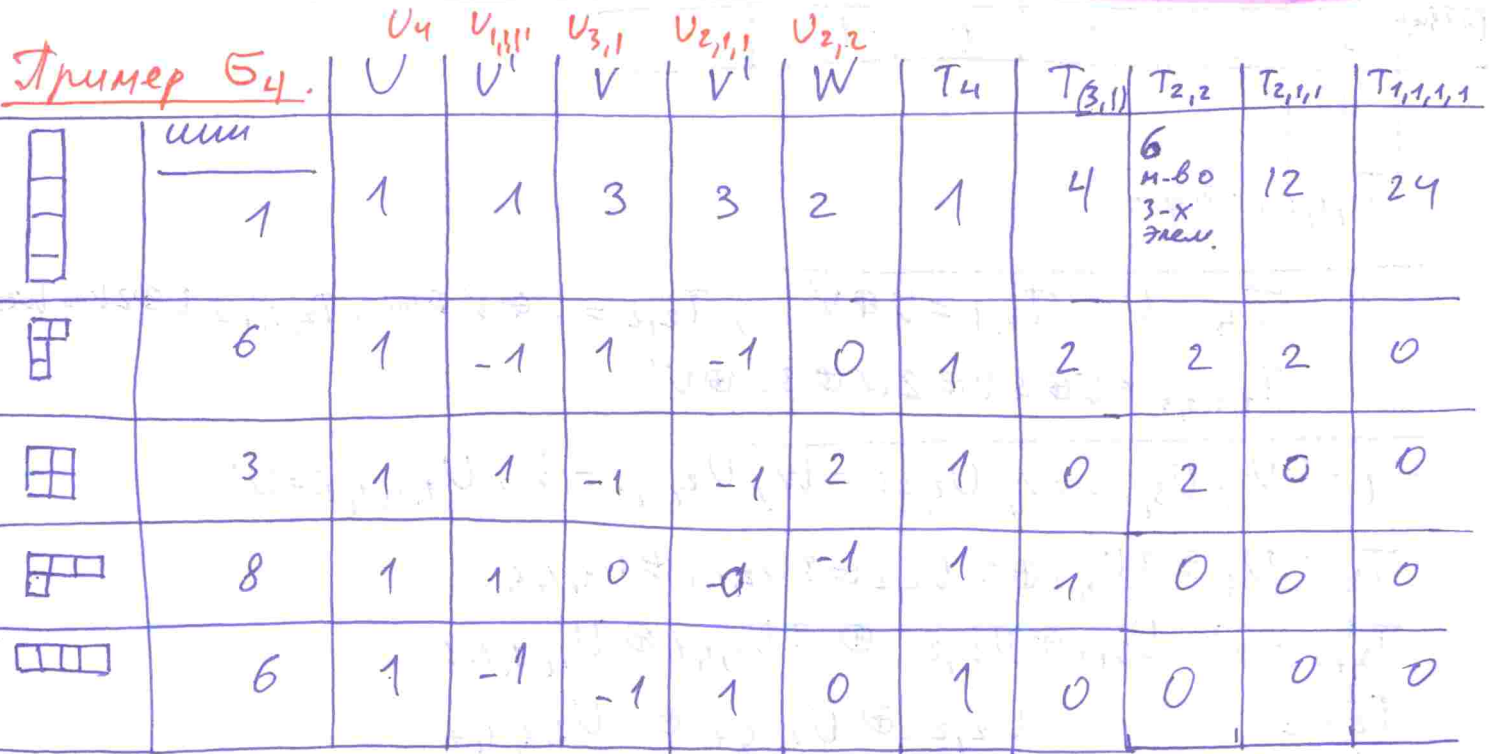 U₄ U₁,₁,₁,₁ U₃,₁ U₂,₁,₁ U₂,₂
Пример S₄. U U' V V' W T₄ T(3,1) T₂,₂ T₂,₁,₁ T₁,₁,₁,₁
1 1 1 3 3 2 1 4 6 12 24
м-во
3-х
элем.
6 1 -1 1 -1 0 1 2 2 2 0
3 1 1 -1 -1 2 1 0 2 0 0
8 1 1 0 0 -1 1 1 0 0 0
6 1 -1 -1 1 0 1 0 0 0 0